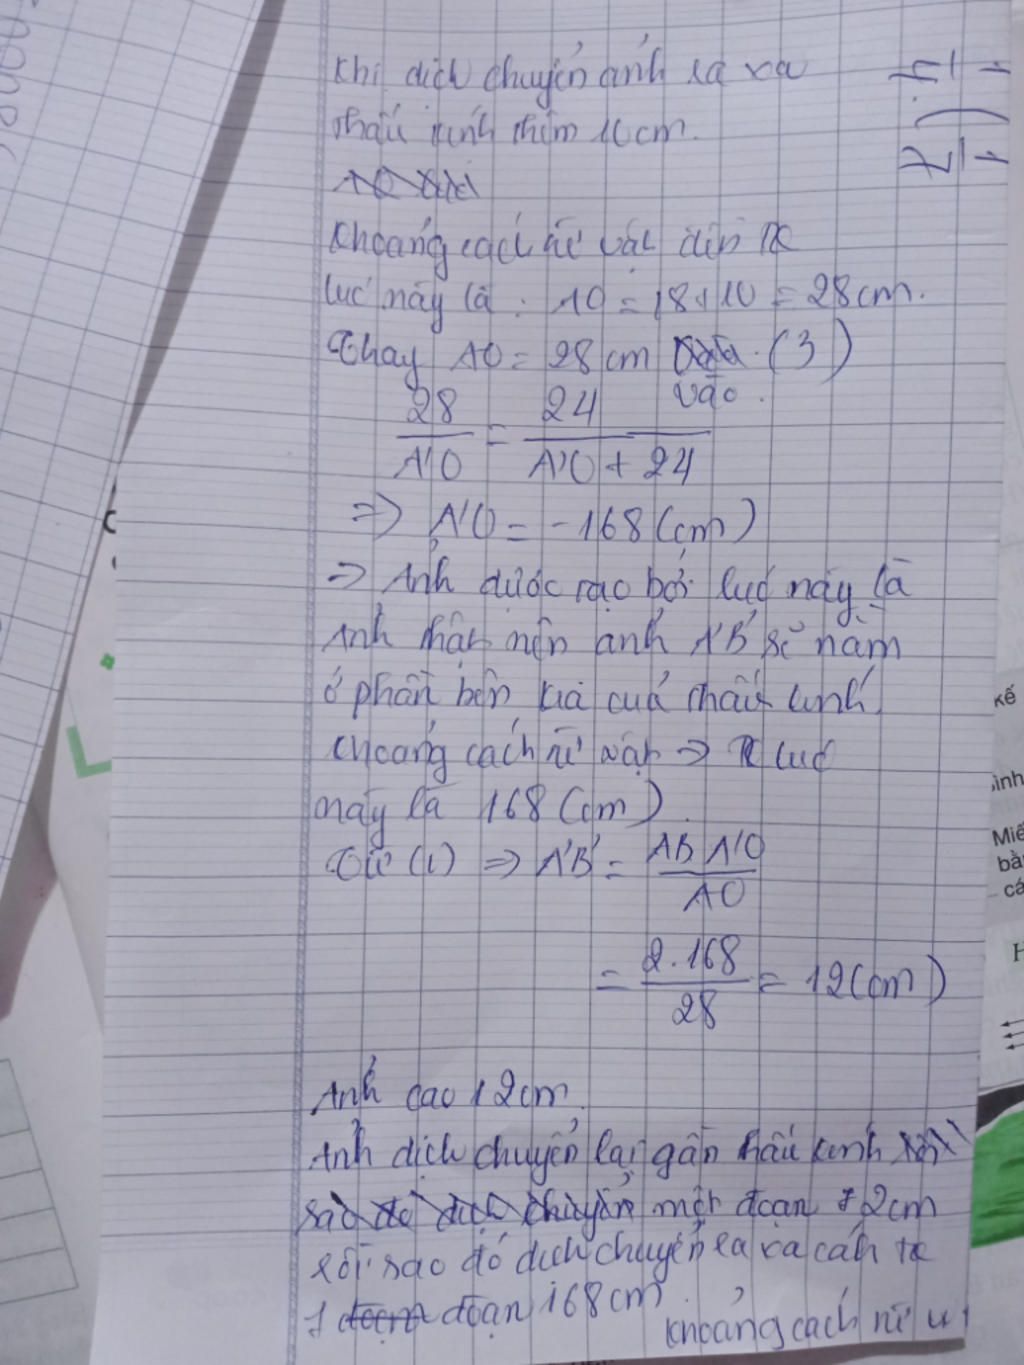 Khi dịch chuyển ảnh ra xa
thấu kính thêm 10cm.
Khoảng cách từ vật đến TK
lúc này là : AO = 18+10 = 28cm.
Thay AO = 28cm (3)
vào.
28/A'O = 24/(A'O + 24)
=> A'O = -168 (cm)
=> Ảnh được tạo bởi lúc này là
ảnh thật nên ảnh A'B' sẽ nằm
ở phần bên kia của thấu kính.
Khoảng cách từ vật → TK lúc
này là 168 (cm)
Từ (1) => A'B' = AB A'O/AO
= 2.168/28 = 12 (cm)
Ảnh cao 12cm.
Ảnh dịch chuyển lại gần thấu kính
một đoạn 72cm
rồi sao đó dịch chuyển ra xa cách TK
1 đoạn 168cm.
Khoảng cách từ
kế
ình
Miế
bằ
- cá
H